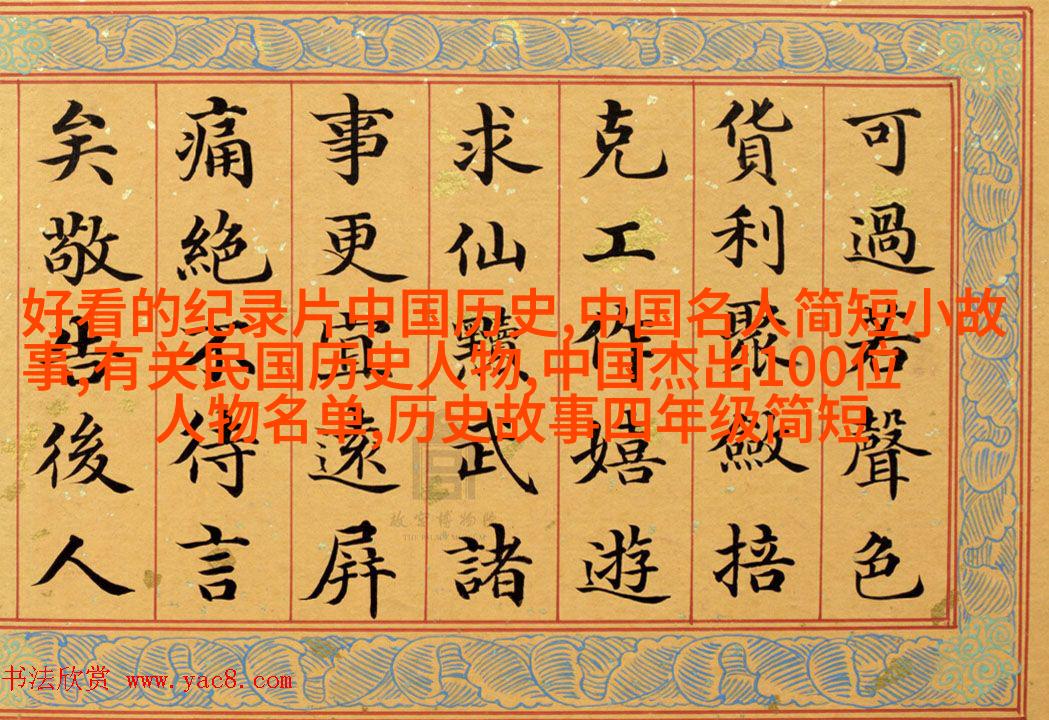 可過若聲色
貨利聚斂掊
克工作嬉遊
求仙黷武諸
事更宜遠屏
痛絕不待言
矣敬告後人
好看的纪录片中国历史,中国名人简短小故
事,有关民国历史人物,中国杰出100位
人物名单,历史故事四年级简短
故宫博物院
书法欣赏 www.yac8.com